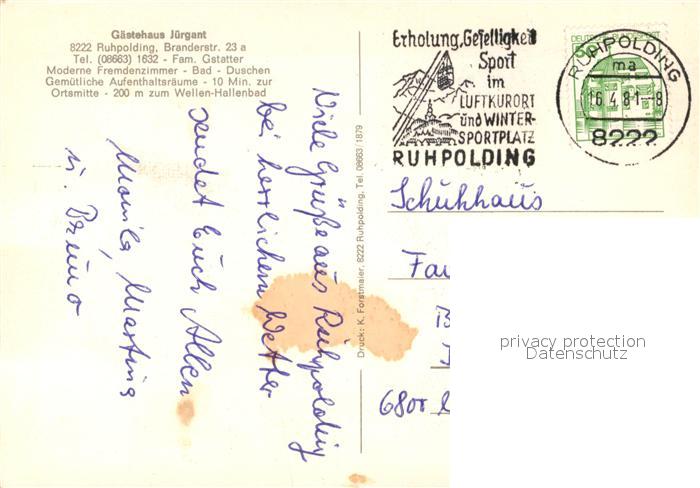 Gästehaus Jürgant
8222 Ruhpolding, Branderstr. 23 a
Tel. (08663) 1632 - Fam. Gstatter
Moderne Fremdenzimmer - Bad - Duschen
Gemütliche Aufenthaltsräume - 10 Min. zur
Ortsmitte - 200 m zum Wellen-Hallenbad
Viele Grüße aus Ruhpolding
bei herrlichem Wetter
sendet Euch Allen
Monika, Martina
u. Bruno
Druck: K. Forstmaier, 8222 Ruhpolding, Tel. 08663/1879
Erholung, Geselligkeit
Sport
im
LUFTKURORT
und WINTER-
SPORTPLATZ
RUHPOLDING
DEUTSCHE BUNDESPOST
50
RUHPOLDING
ma
16.4.81-8
8222
Schuhhaus
Fa
680
privacy protection
Datenschutz